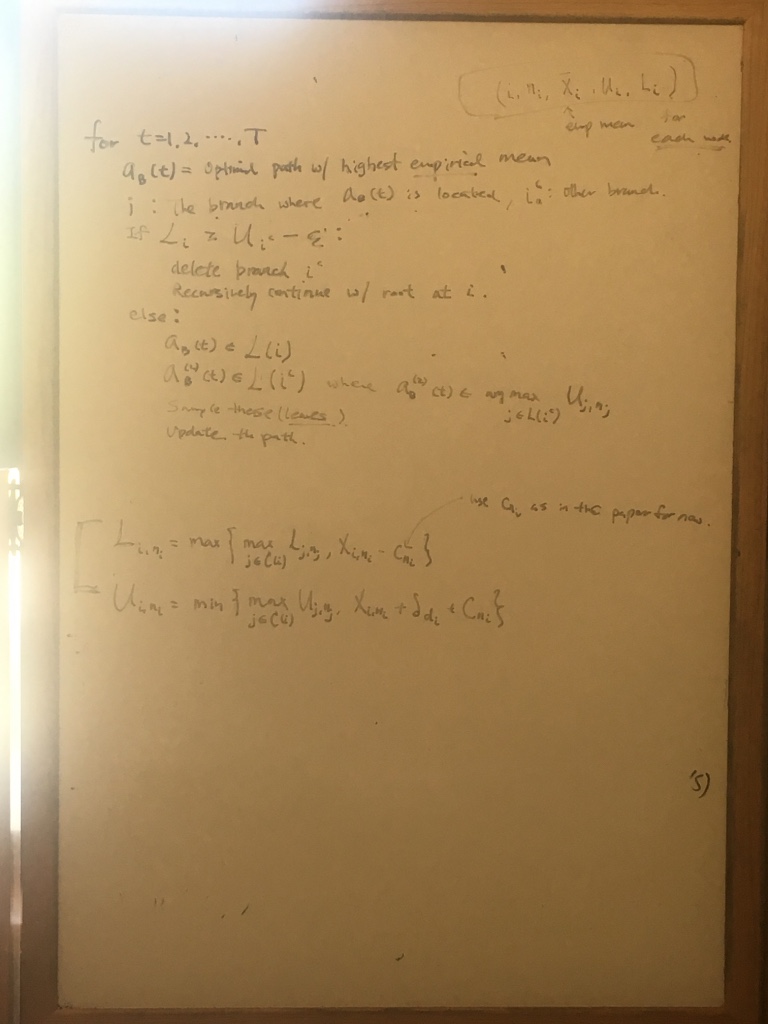 (i, n_i, X̄_i, U_i, L_i)
↑ emp mean for each node
for t=1,2,.....,T
a_B(t) = optimal path w/ highest empirical mean
i : the branch where a_B(t) is located, i^c : other branch.
If L_i ≥ U_{i^c} - ε :
delete branch i^c
Recursively continue w/ root at i.
else:
a_B(t) ∈ L(i)
a_B^{(2)}(t) ∈ L(i^c) where a_B^{(2)}(t) ∈ argmax_{j∈L(i^c)} U_{j,n_j}
Sample these (leaves)
Update the path.
use C_{n_i} as in the paper for now.
L_{i,n_i} = max{ max_{j∈C(i)} L_{j,n_j}, X_{i,n_i} - C_{n_i} }
U_{i,n_i} = min{ max_{j∈C(i)} U_{j,n_j}, X_{i,n_i} + δ_{d_i} + C_{n_i} }
'5)